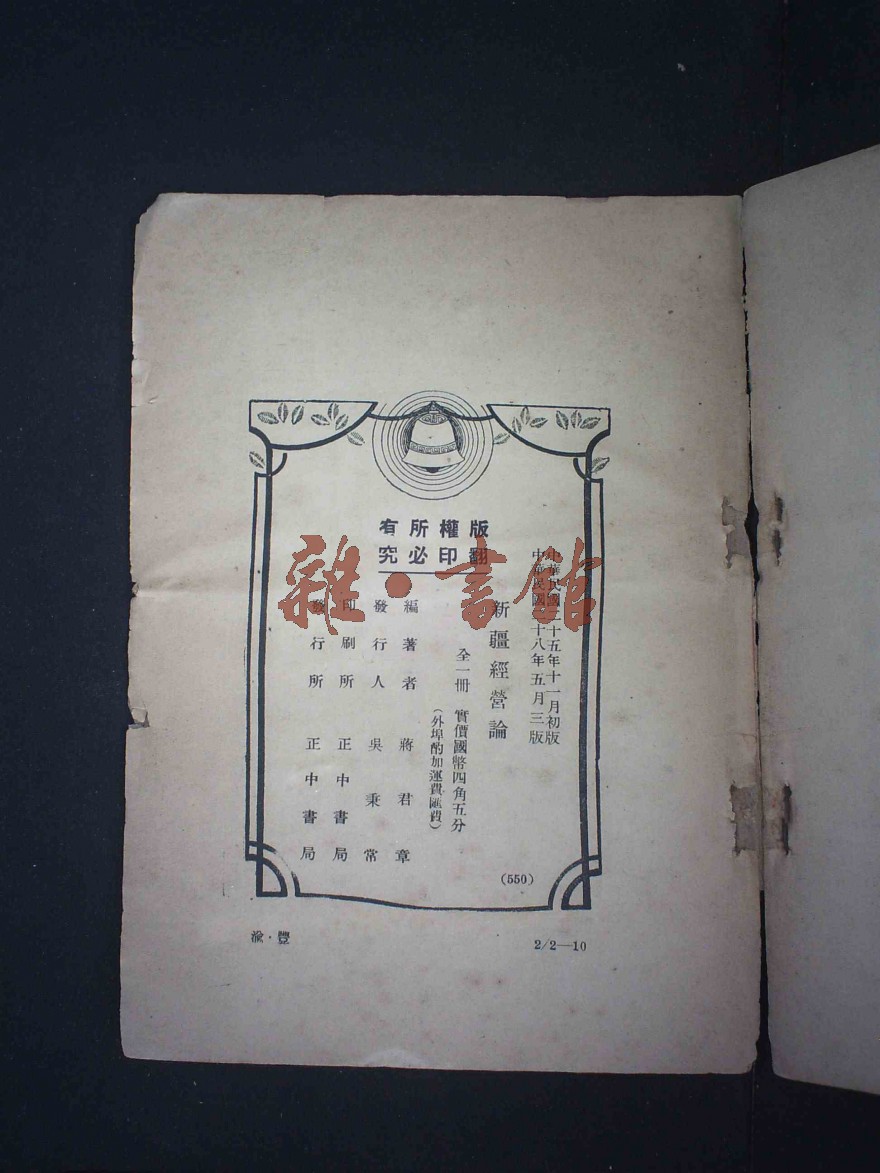 中華民國二十五年十一月初版
中華民國二十八年五月三版
版權所有
翻印必究
新疆經營論
全一冊 實價國幣四角五分
(外埠酌加運費匯費)
編著者 蔣君章
發行人 吳秉常
印刷所 正中書局
發行所 正中書局
(550)
渝·豐
2/2—10
雜·書館